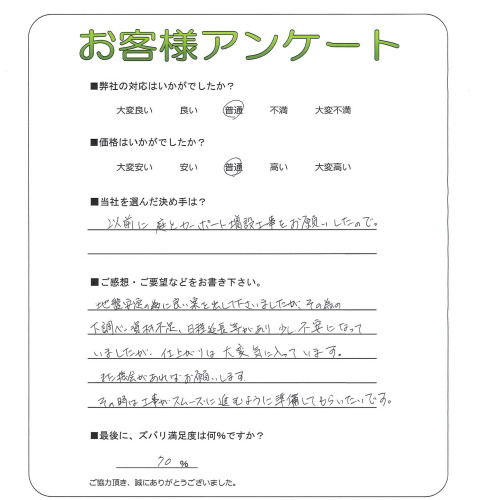 お客様アンケート
■弊社の対応はいかがでしたか？
大変良い 良い 普通 不満 大変不満
■価格はいかがでしたか？
大変安い 安い 普通 高い 大変高い
■当社を選んだ決め手は？
以前に庭とカーポート増設工事をお願いしたので。
■ご感想・ご要望などをお書き下さい。
地盤安定の為に良い案を出して下さいましたが、その為の
下調べ、資材不足、日程延長等があり少し不安になって
いましたが、仕上がりは大変気に入っています。
また機会があればお願いします
その時は工事がスムーズに進むように準備してもらいたいです。
■最後に、ズバリ満足度は何％ですか？
70 ％
ご協力頂き、誠にありがとうございました。